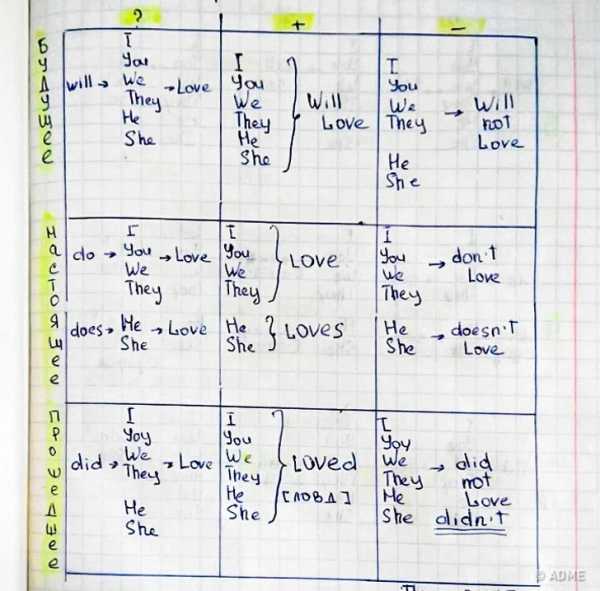 ? + -
Будущее
will → I You We They He She → Love
I You We They He She } Will Love
I You We They He She → Will not Love
Настоящее
do → I You We They → Love
I You We They } Love
I You We They → don't Love
does → He She → Love
He She } Loves
He She → doesn't Love
Прошедшее
did → I Yoy We They He She → Love
I You We They He She } Loved [ловд]
I Yoy We They He She → did not Love didn't
© ADME